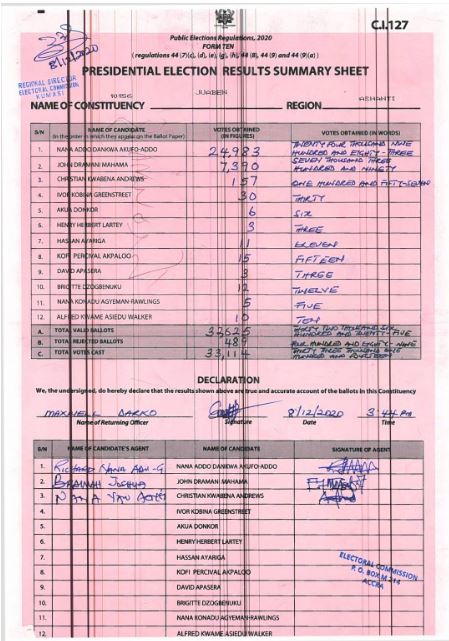 C.I.127
Public Elections Regulations, 2020
FORM TEN
(regulations 44 (7)(c), (d), (e), (g), (h), 44 (8), 44 (9) and 44 (9)(a))
8/12/2020
REGIONAL DIRECTOR
ELECTORAL COMMISSION
KUMASI
PRESIDENTIAL ELECTION RESULTS SUMMARY SHEET
NAME OF CONSTITUENCY JUABEN REGION ASHANTI
S/N NAME OF CANDIDATE (In the order in which they appear on the Ballot Paper) VOTES OBTAINED (IN FIGURES) VOTES OBTAINED (IN WORDS)
1. NANA ADDO DANKWA AKUFO-ADDO 24,983 TWENTY FOUR THOUSAND NINE HUNDRED AND EIGHTY-THREE
2. JOHN DRAMANI MAHAMA 7,390 SEVEN THOUSAND THREE HUNDRED AND NINETY
3. CHRISTIAN KWABENA ANDREWS 157 ONE HUNDRED AND FIFTY-SEVEN
4. IVOR KOBINA GREENSTREET 30 THIRTY
5. AKUA DONKOR 6 SIX
6. HENRY HERBERT LARTEY 3 THREE
7. HASSAN AYARIGA 11 ELEVEN
8. KOFI PERCIVAL AKPALOO 15 FIFTEEN
9. DAVID APASERA 3 THREE
10. BRIGITTE DZOGBENUKU 12 TWELVE
11. NANA KONADU AGYEMAN-RAWLINGS 5 FIVE
12. ALFRED KWAME ASIEDU WALKER 10 TEN
A. TOTAL VALID BALLOTS 32,625 THIRTY TWO THOUSAND SIX HUNDRED AND TWENTY-FIVE
B. TOTAL REJECTED BALLOTS 489 FOUR HUNDRED AND EIGHTY-NINE
C. TOTAL VOTES CAST 33,114 THIRTY THREE THOUSAND ONE HUNDRED AND FOURTEEN
DECLARATION
We, the undersigned, do hereby declare that the results shown above are true and accurate account of the ballots in this Constituency
MAXWELL DARKO 8/12/2020 3:44 PM
Name of Returning Officer Signature Date Time
S/N NAME OF CANDIDATE'S AGENT NAME OF CANDIDATE SIGNATURE OF AGENT
1. RICHARD NANA NANA ADDO DANKWA AKUFO-ADDO
2. JOSHUA JOHN DRAMANI MAHAMA
3. NANA YAW CHRISTIAN KWABENA ANDREWS
4. IVOR KOBINA GREENSTREET
5. AKUA DONKOR
6. HENRY HERBERT LARTEY
7. HASSAN AYARIGA
8. KOFI PERCIVAL AKPALOO
9. DAVID APASERA
10. BRIGITTE DZOGBENUKU
11. NANA KONADU AGYEMAN-RAWLINGS
12. ALFRED KWAME ASIEDU WALKER
ELECTORAL COMMISSION
P. O. BOX M 214
ACCRA